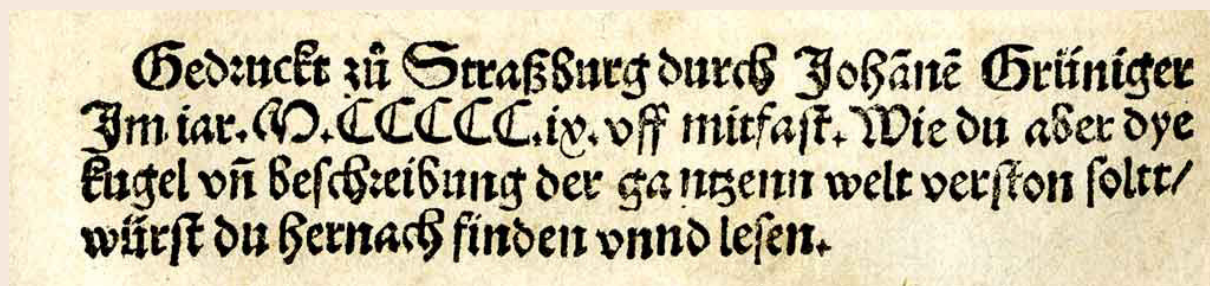 Gedruckt zů Straßburg durch Johãnē Grüniger
Im iar. M.CCCCC.ix. vff mitfast. Wie du aber dye
kugel vñ beschreibung der gantzenn welt verston soltt/
würst du hernach finden vnnd lesen.